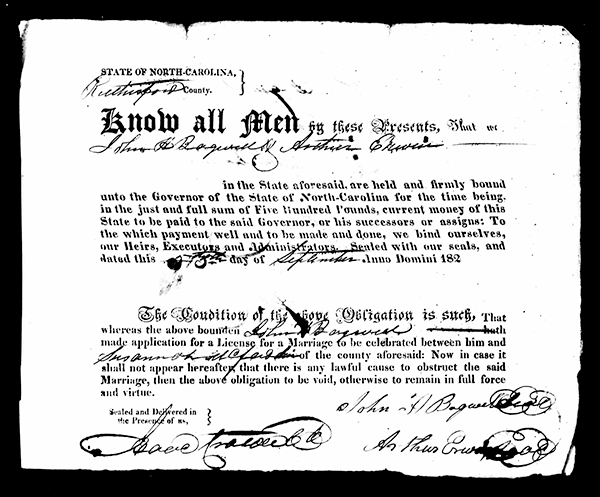 STATE OF NORTH-CAROLINA,
Rutherford County.
Know all Men by these Presents, That we
John H Bagwell & Arthur Erwin
in the State aforesaid, are held and firmly bound
unto the Governor of the State of North-Carolina for the time being,
in the just and full sum of Five Hundred Pounds, current money of this
State to be paid to the said Governor, or his successors or assigns: To
the which payment well and to be made and done, we bind ourselves,
our Heirs, Executors and Administrators. Sealed with our seals, and
dated this day of September Anno Domini 182
The Condition of the above Obligation is such, That
whereas the above bounden John H Bagwell hath
made application for a License for a Marriage to be celebrated between him and
Susannah of the county aforesaid: Now in case it
shall not appear hereafter, that there is any lawful cause to obstruct the said
Marriage, then the above obligation to be void, otherwise to remain in full force
and virtue.
Sealed and Delivered in
the Presence of us,
John H Bagwell Seal
Isaac Craton
Arthur Erwin Seal